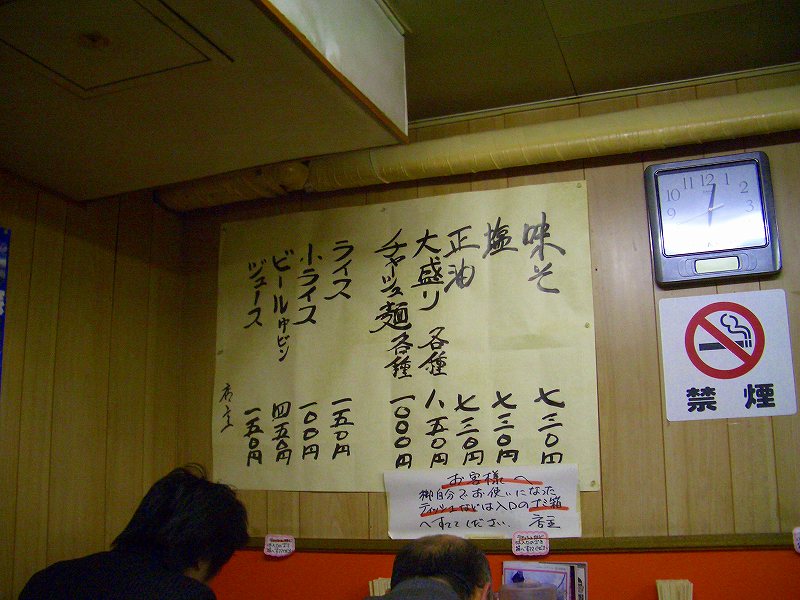 味そ 七三〇円
塩 七三〇円
正油 七三〇円
大盛り 各種 八五〇円
チャーシュー麺 各種 一〇〇〇円
ライス 一五〇円
小ライス 一〇〇円
ビール中ビン 四五〇円
ジュース 一五〇円
店主
お客様へ
御自分でお使いになった
ティッシュなどは入口のゴミ箱
へすて下さい。 店主
禁煙
12
1
2
3
9
10
11